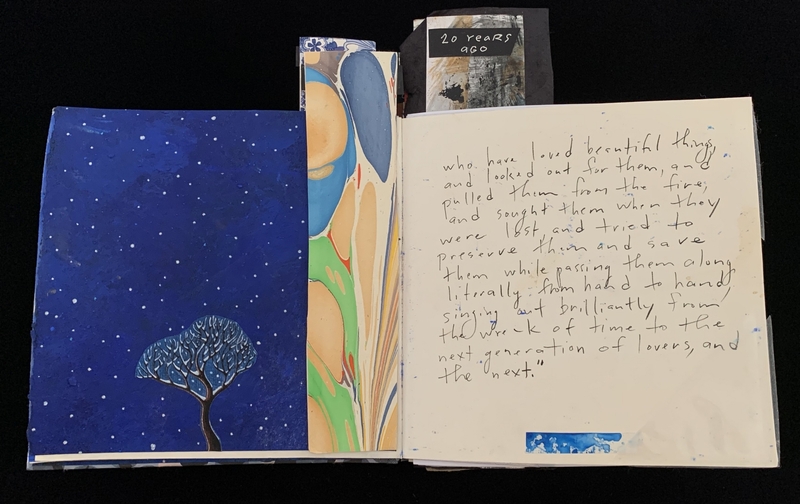 20 YEARS
AGO
who have loved beautiful things,
and looked out for them, and
pulled them from the fire,
and sought them when they
were lost, and tried to
preserve them and save
them while passing them along
literally from hand to hand,
singing out brilliantly from
the wreck of time to the
next generation of lovers, and
the next."